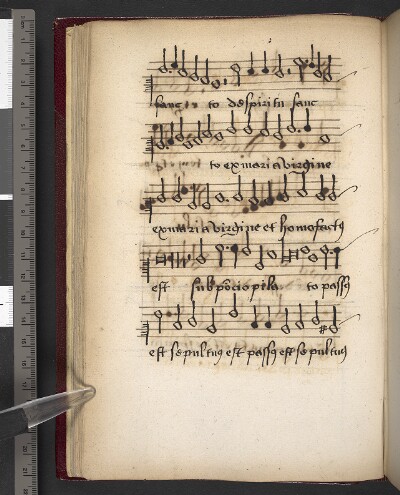 sanctu to de spiritu sanc
to ex maria virgine
ex maria virgine et homo factꝰ
est sub pōcio pila to passꝰ
est sepultus est passꝰ est sepultus